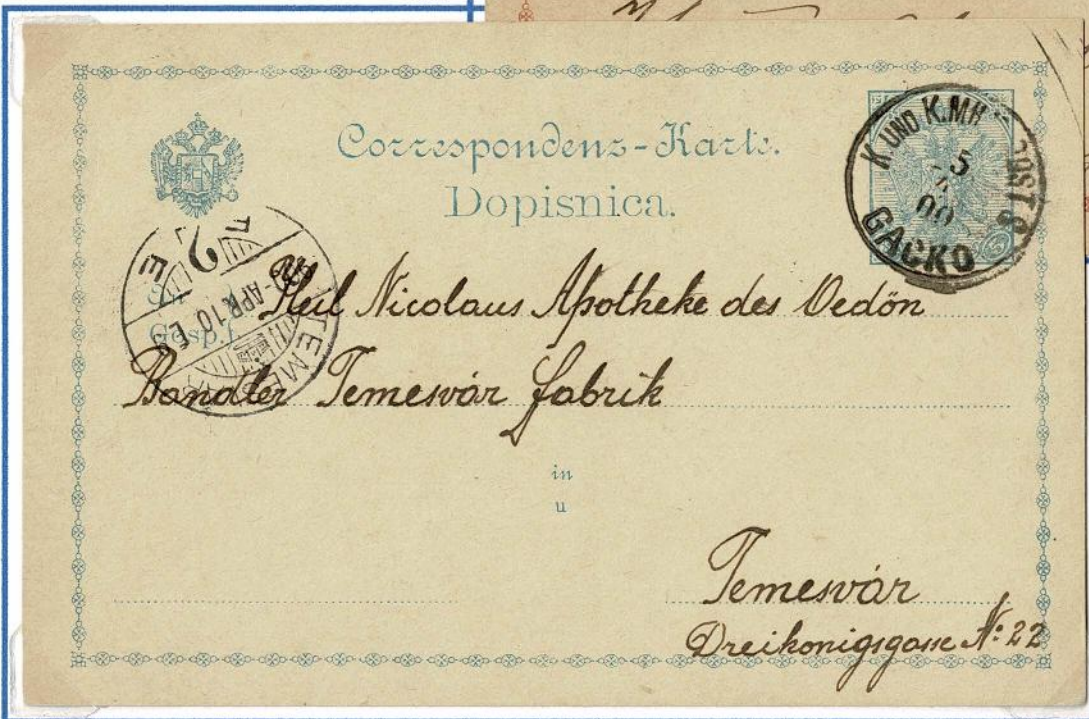 Correspondenz-Karte.
Dopisnica.
K. UND K. MIL POST
5
4
00
GACKO
TEMESVÁR
900 APR 10 E
2
Gosp./
Heil Nicolaus Apotheke des Oedön
Bandler Temesvár fabrik
in
u
Temesvár
Dreikonigsgasse N: 22